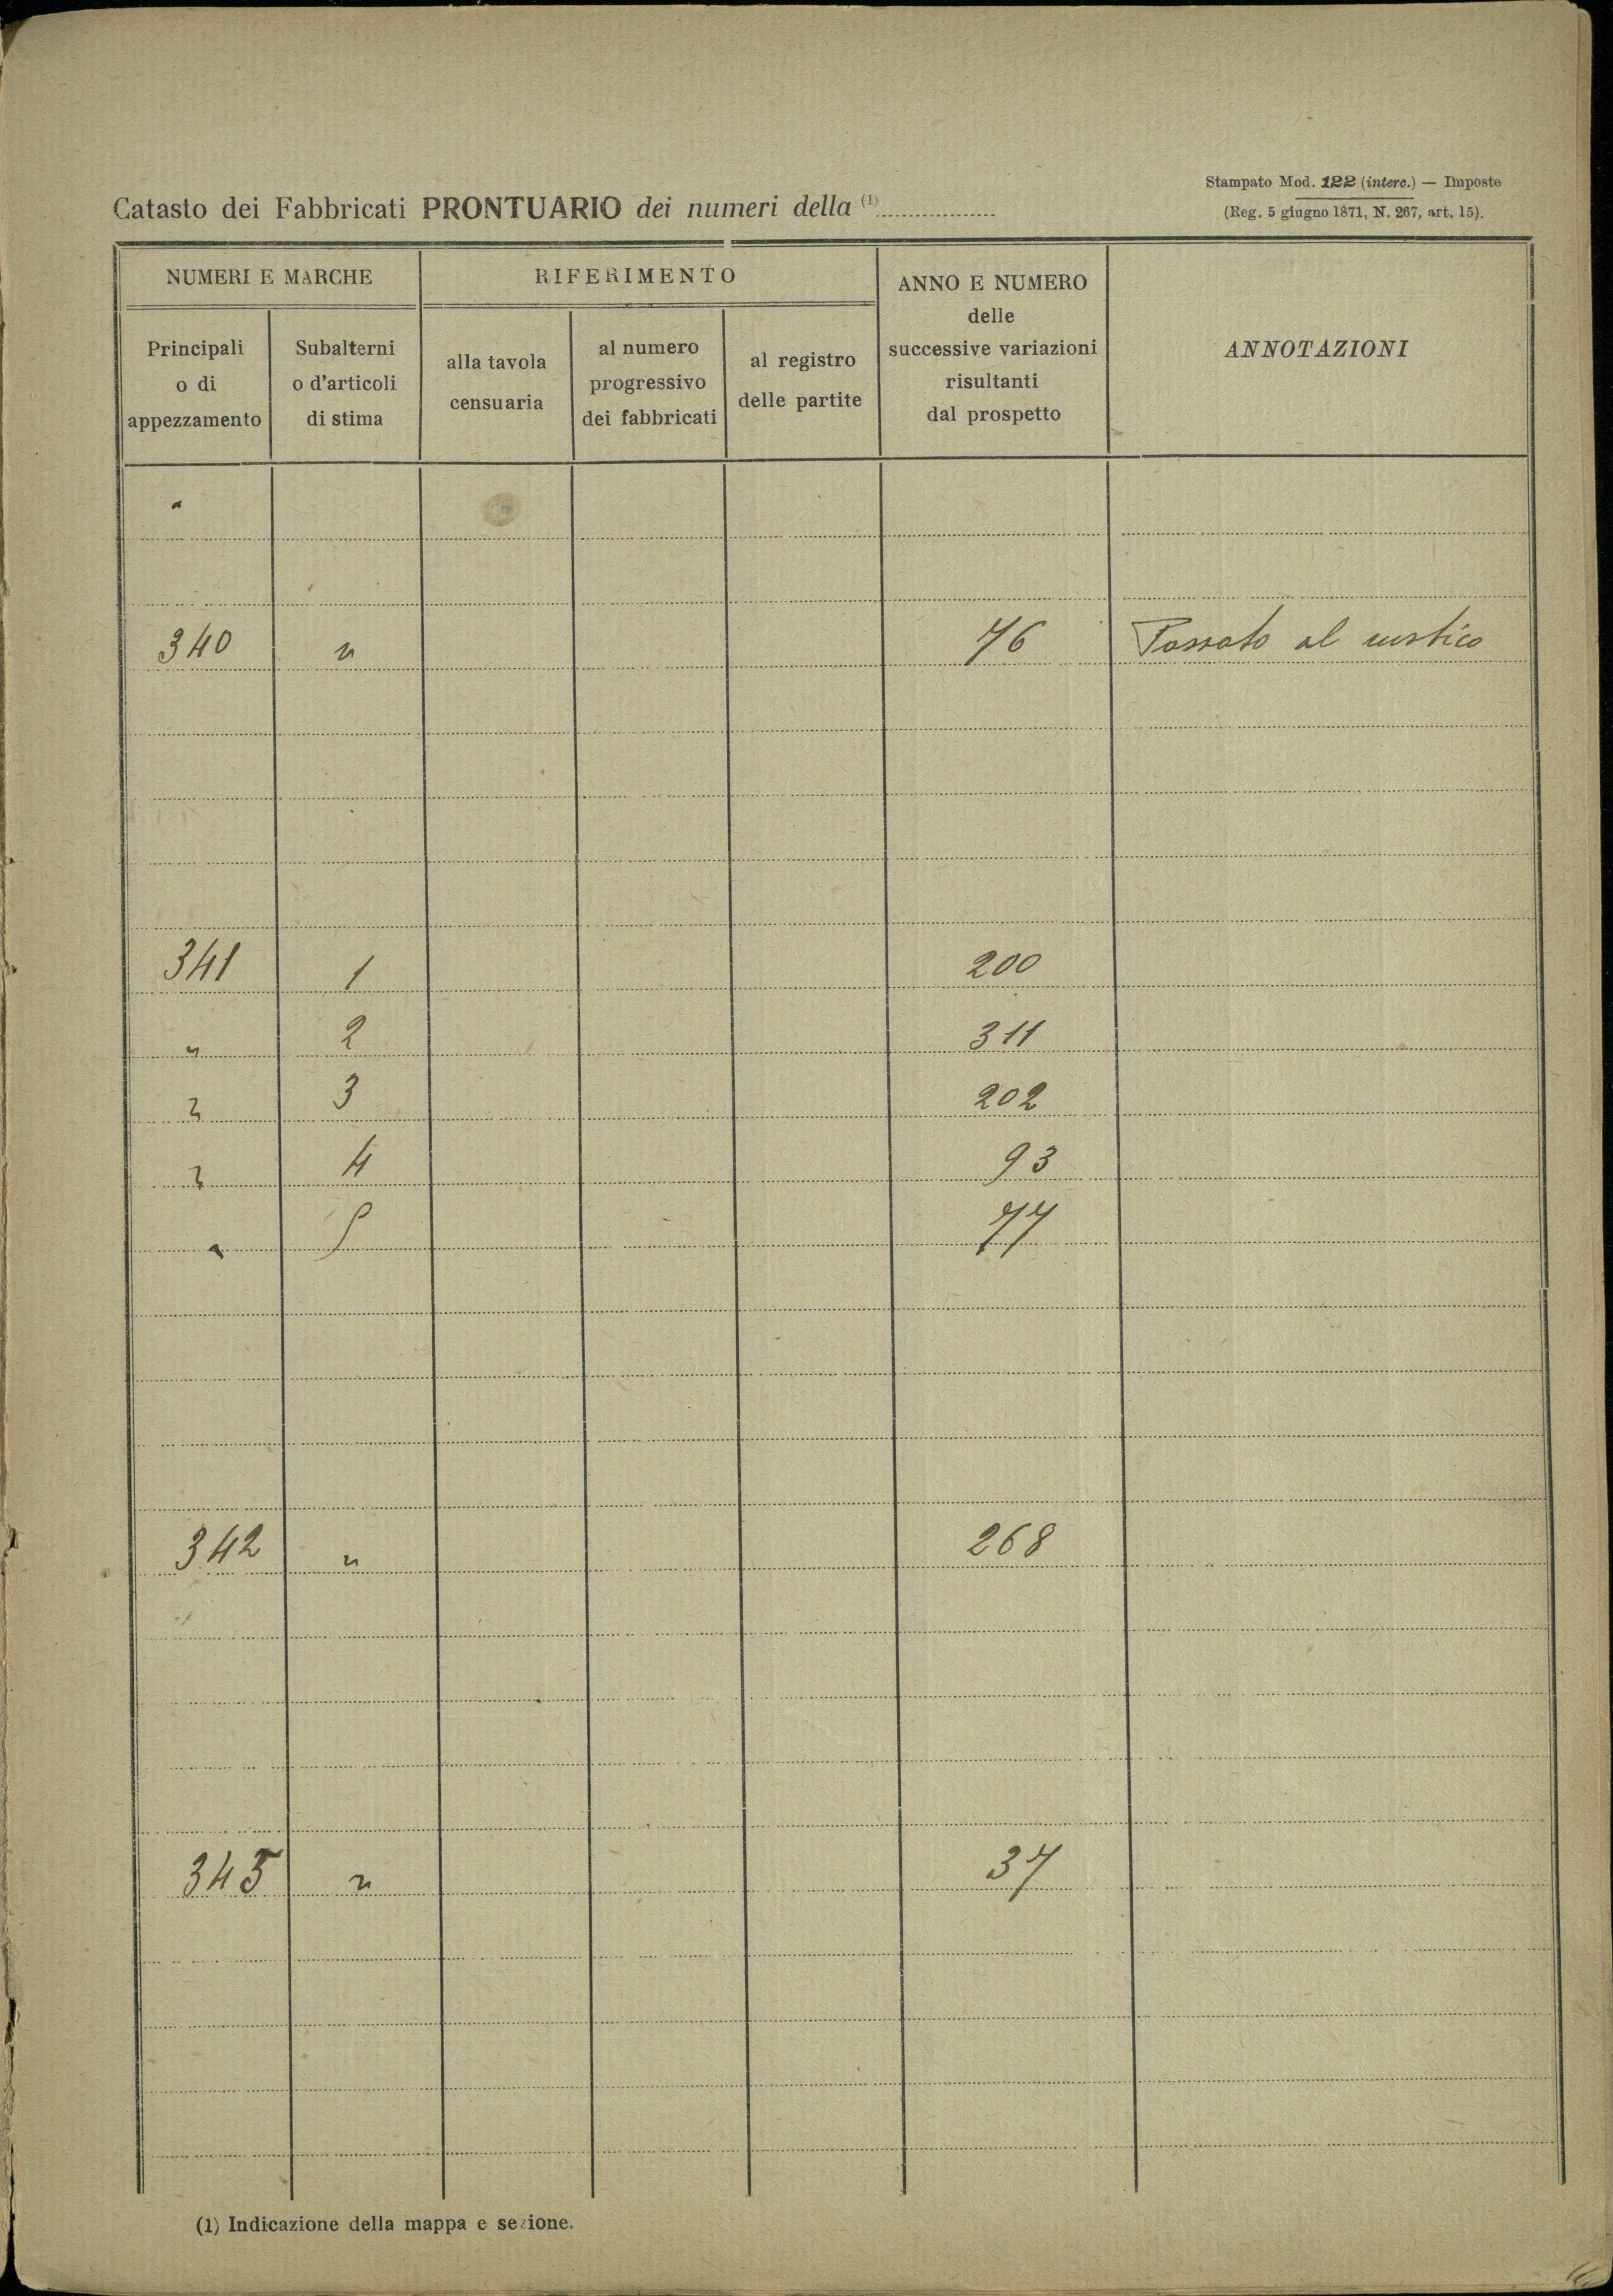 Stampato Mod. 122 (interc.) — Imposte
Catasto dei Fabbricati PRONTUARIO dei numeri della (1)
(Reg. 5 giugno 1871, N. 267, art. 15).
NUMERI E MARCHE
RIFERIMENTO
ANNO E NUMERO
delle
successive variazioni
risultanti
dal prospetto
ANNOTAZIONI
Principali
o di
appezzamento
Subalterni
o d'articoli
di stima
alla tavola
censuaria
al numero
progressivo
dei fabbricati
al registro
delle partite
340 " 76 Passato al rustico
341 1 200
" 2 311
" 3 202
" 4 93
" 5 77
342 " 268
345 " 37
(1) Indicazione della mappa e sezione.